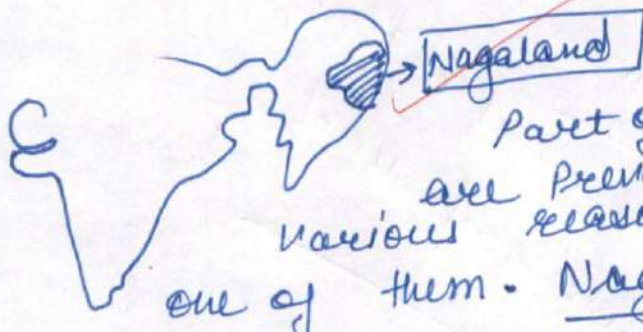 Nagaland
Part
are
various reas
one of them. Nag